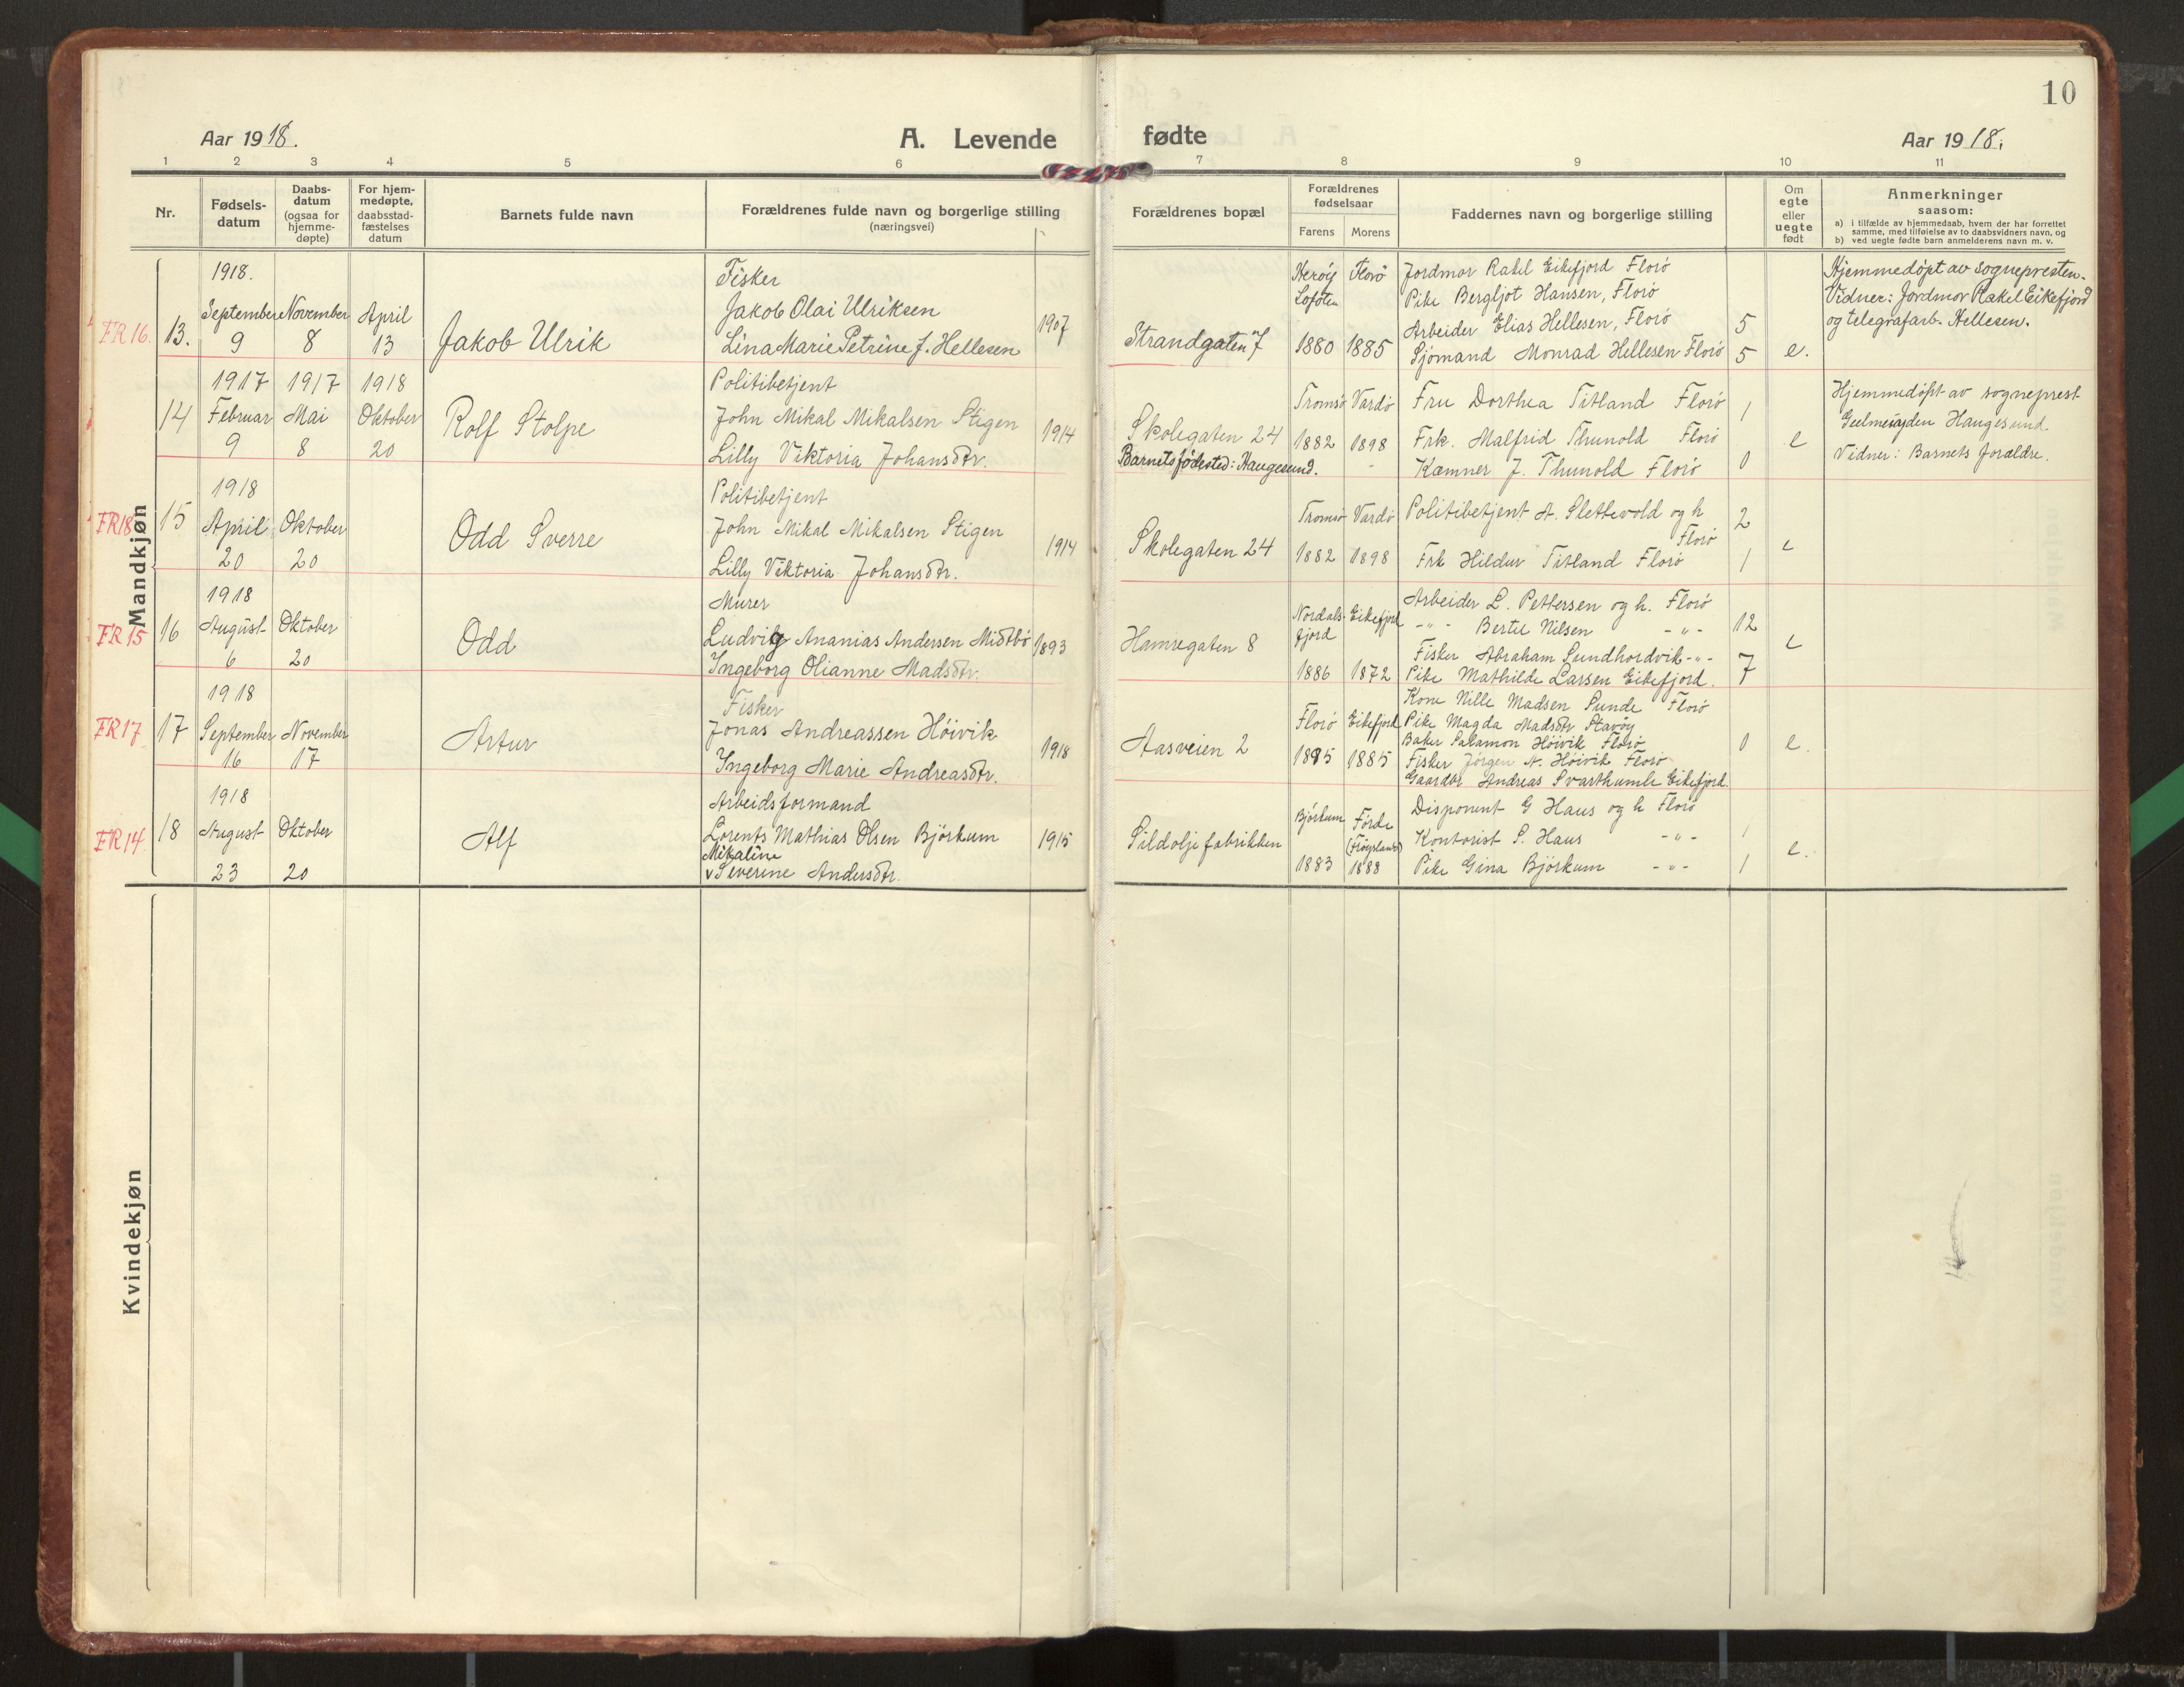 10
Aar 1918.
A. Levende fødte
Aar 1918.
1 2 3 4 5 6 7 8 9 10 11
Nr.
Fødsels-
datum
Daabs-
datum
(ogsaa for
hjemme-
døpte)
For hjem-
medøpte,
daabsstad-
fæstelses
datum
Barnets fulde navn
Forældrenes fulde navn og borgerlige stilling
(næringsvei)
Forældrenes bopæl
Forældrenes
fødselsaar
Farens Morens
Faddernes navn og borgerlige stilling
Om
egte
eller
uegte
født
Anmerkninger
saasom:
a) i tilfælde av hjemmedaab, hvem der har forrettet
samme, med tilføielse av to daabsvidners navn, og
b) ved uegte fødte barn anmelderens navn m. v.
Mandkjøn
FR 16.
13.
1918.
September
9
November
8
April
13
Jakob Ulrik
Fisker
Jakob Olai Ulriksen
Lina Marie Petrine J. Hellesen
1907
Strandgaten 7
Herøy
Lofoten
1880
Florø
1885
Jordmor Rakel Eikefjord Florø
Pike Bergljot Hansen, Florø
Arbeider Elias Hellesen, Florø
Sjømand Monrad Hellesen Florø
5
5
e.
Hjemmedøpt av sognepresten.
Vidner: Jordmor Rakel Eikefjord
og telegrafarb. Hellesen.
14
1917
Februar
9
1917
Mai
8
1918
Oktober
20
Rolf Stolpe
Politibetjent
John Mikal Mikalsen Stigen
Lilly Viktoria Johansdtr.
1914
Skolegaten 24
Barnets fødested: Haugesund.
Tromsø
1882
Vardø
1898
Fru Dorthea Titland Florø
Frk. Malfrid Thunold Florø
Kæmner J. Thunold Florø
1
0
e
Hjemmedøpt av sogneprest
Geelmuyden Haugesund.
Vidner: Barnets forældre.
FR 18
15
1918
April
20
Oktober
20
Odd Sverre
Politibetjent
John Mikal Mikalsen Stigen
Lilly Viktoria Johansdtr.
1914
Skolegaten 24
Tromsø
1882
Vardø
1898
Politibetjent A. Slettevold og h
Florø
Frk Hildur Titland Florø
2
1
e
FR 15
16
1918
August
6
Oktober
20
Odd
Murer
Ludvig Ananias Andersen Midtbø
Ingeborg Olianne Madsdtr.
1893
Hamregaten 8
Nordals-
fjord
1886
Eikefjord
1872
Arbeider L. Pettersen og h. Florø
-"- Bertil Nilsen -"-
Fisker Abraham Sundhordvik -"-
Pike Mathilde Larsen Eikefjord.
12
7
e
FR 17
17
1918
September
16
November
17
Artur
Fisker
Jonas Andreassen Høivik
Ingeborg Marie Andreasdtr.
1918
Aasveien 2
Florø
1895
Eikefjord
1885
Kone Nille Madsen Sunde Florø
Pike Magda Madsdtr Stavøy
Baker Salamon Høivik Florø
Fisker Jørgen A. Høivik Florø
Gaardbr Andreas Svarthumle Eikefjord.
0
e.
FR 14.
18
1918
August
23
Oktober
20
Alf
Arbeidsformand
Lorents Mathias Olsen Bjørkum
Mikaline
v Severine Andersdtr.
1915
Sildoljefabrikken
Bjørkum
1883
Førde
1888
Disponent G Haus og h Florø
Kontorist S. Haus -"-
Pike Gina Bjørkum -"-
1
1
e.
Kvindekjøn